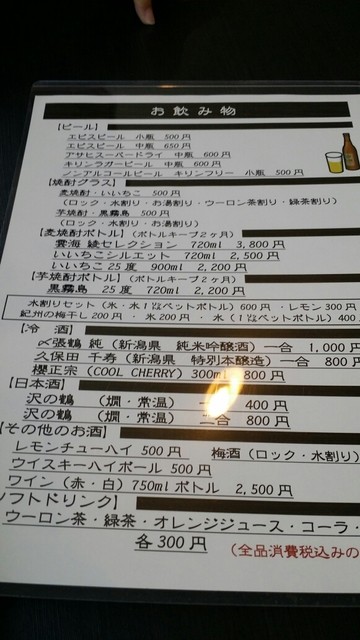 お飲み物
【ビール】
エビスビール 小瓶 500円
エビスビール 中瓶 650円
アサヒスーパードライ 中瓶 600円
キリンラガービール 中瓶 600円
ノンアルコールビール キリンフリー 小瓶 500円
【焼酎グラス】
麦焼酎・いいちこ 500円
（ロック・水割り・お湯割り・ウーロン茶割り・緑茶割り）
芋焼酎・黒霧島 500円
（ロック・水割り・お湯割り）
【麦焼酎ボトル】（ボトルキープ2ヶ月）
雲海 綾セレクション 720ml 3,800円
いいちこシルエット 720ml 2,500円
いいちこ25度 900ml 2,200円
【芋焼酎ボトル】（ボトルキープ2ヶ月）
黒霧島 25度 720ml 2,200円
水割りセット（氷・水1㍑ペットボトル）600円・レモン300円
紀州の梅干し200円・氷200円・水（1㍑ペットボトル）400
【冷 酒】
〆張鶴 純（新潟県 純米吟醸酒）一合 1,000円
久保田 千寿（新潟県 特別本醸造）一合 800円
櫻正宗（COOL CHERRY）300ml 800円
【日本酒】
沢の鶴 （燗・常温） 400円
沢の鶴 （燗・常温） 二合 800円
【その他のお酒】
レモンチューハイ 500円 梅酒（ロック・水割り）
ウイスキーハイボール 500円
ワイン（赤・白）750mlボトル 2,500円
ソフトドリンク】
ウーロン茶・緑茶・オレンジジュース・コーラ・
各300円 （全品消費税込みの